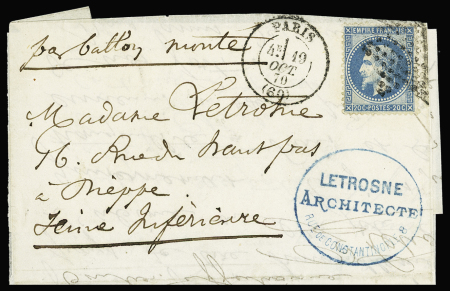 par ballon monté
PARIS
1
19
OCT
70
(60)
EMPIRE FRANÇAIS
20C POSTES 20C
Madame Letrosne
76, Rue du haut pas
à Dieppe
Seine Inférieure
LETROSNE
ARCHITECTE
RUE DE CONSTANTINOPLE